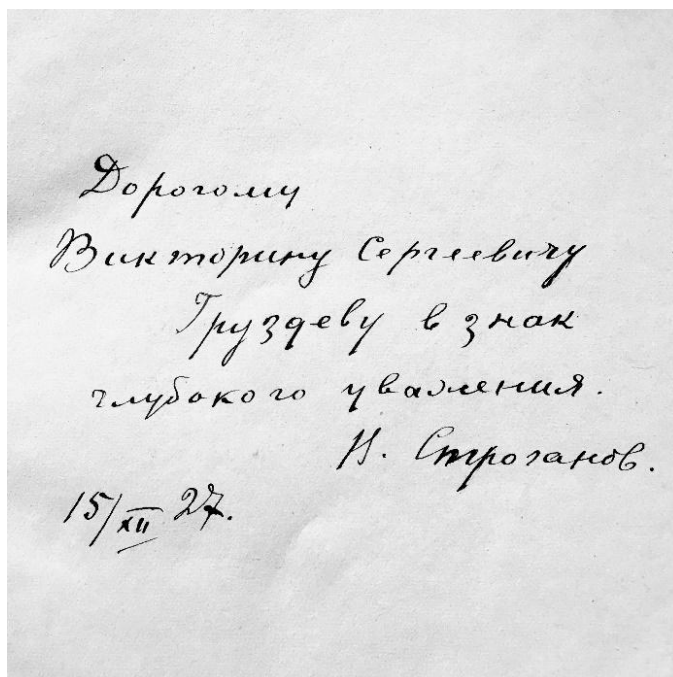 Дорогому
Викторину Сергеевичу
Груздеву в знак
глубокого уважения.
Н. Строганов.
15/XII 27.